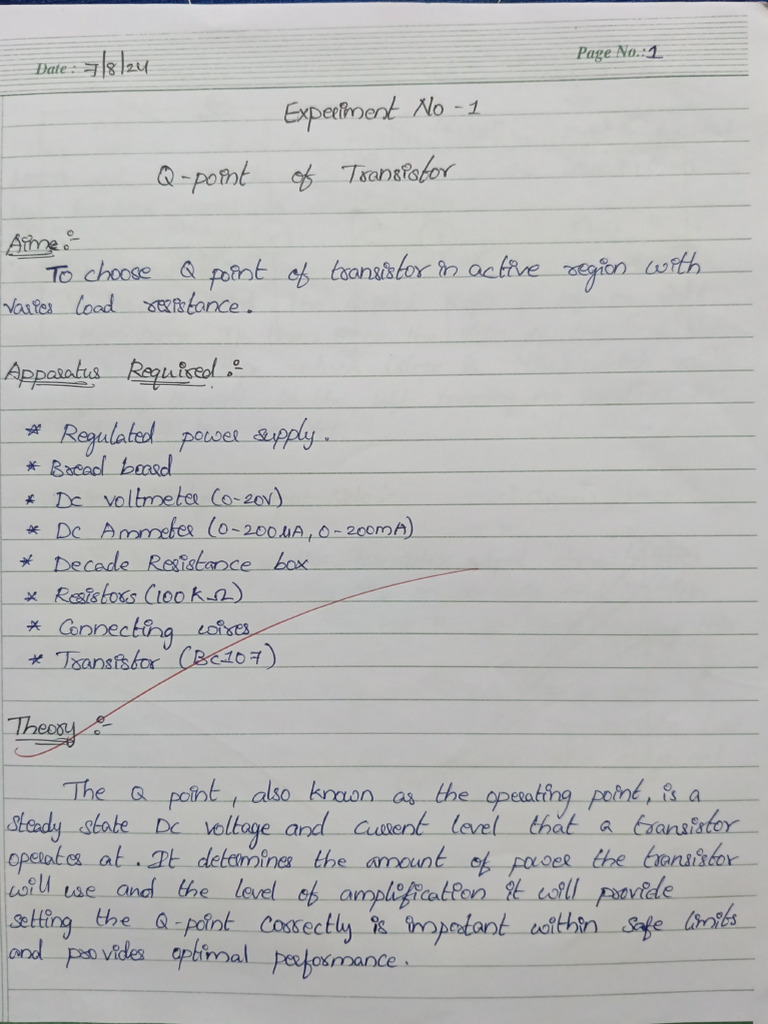 Date : 7/8/24
Page No.: 1
Experiment No - 1
Q-point of Transistor
Aime :-
To choose Q point of transistor in active region with
varies load resistance.
Apparatus Required :-
* Regulated power supply.
* Bread board
* DC voltmeter (0-20V)
* DC Ammeter (0-200µA, 0-200mA)
* Decade Resistance box
* Resistors (100KΩ)
* Connecting wires
* Transistor (BC107)
Theory :-
The Q point, also known as the operating point, is a
steady state DC voltage and current level that a transistor
operates at. It determines the amount of power the transistor
will use and the level of amplification it will provide
setting the Q-point correctly is important within safe limits
and provides optimal performance.